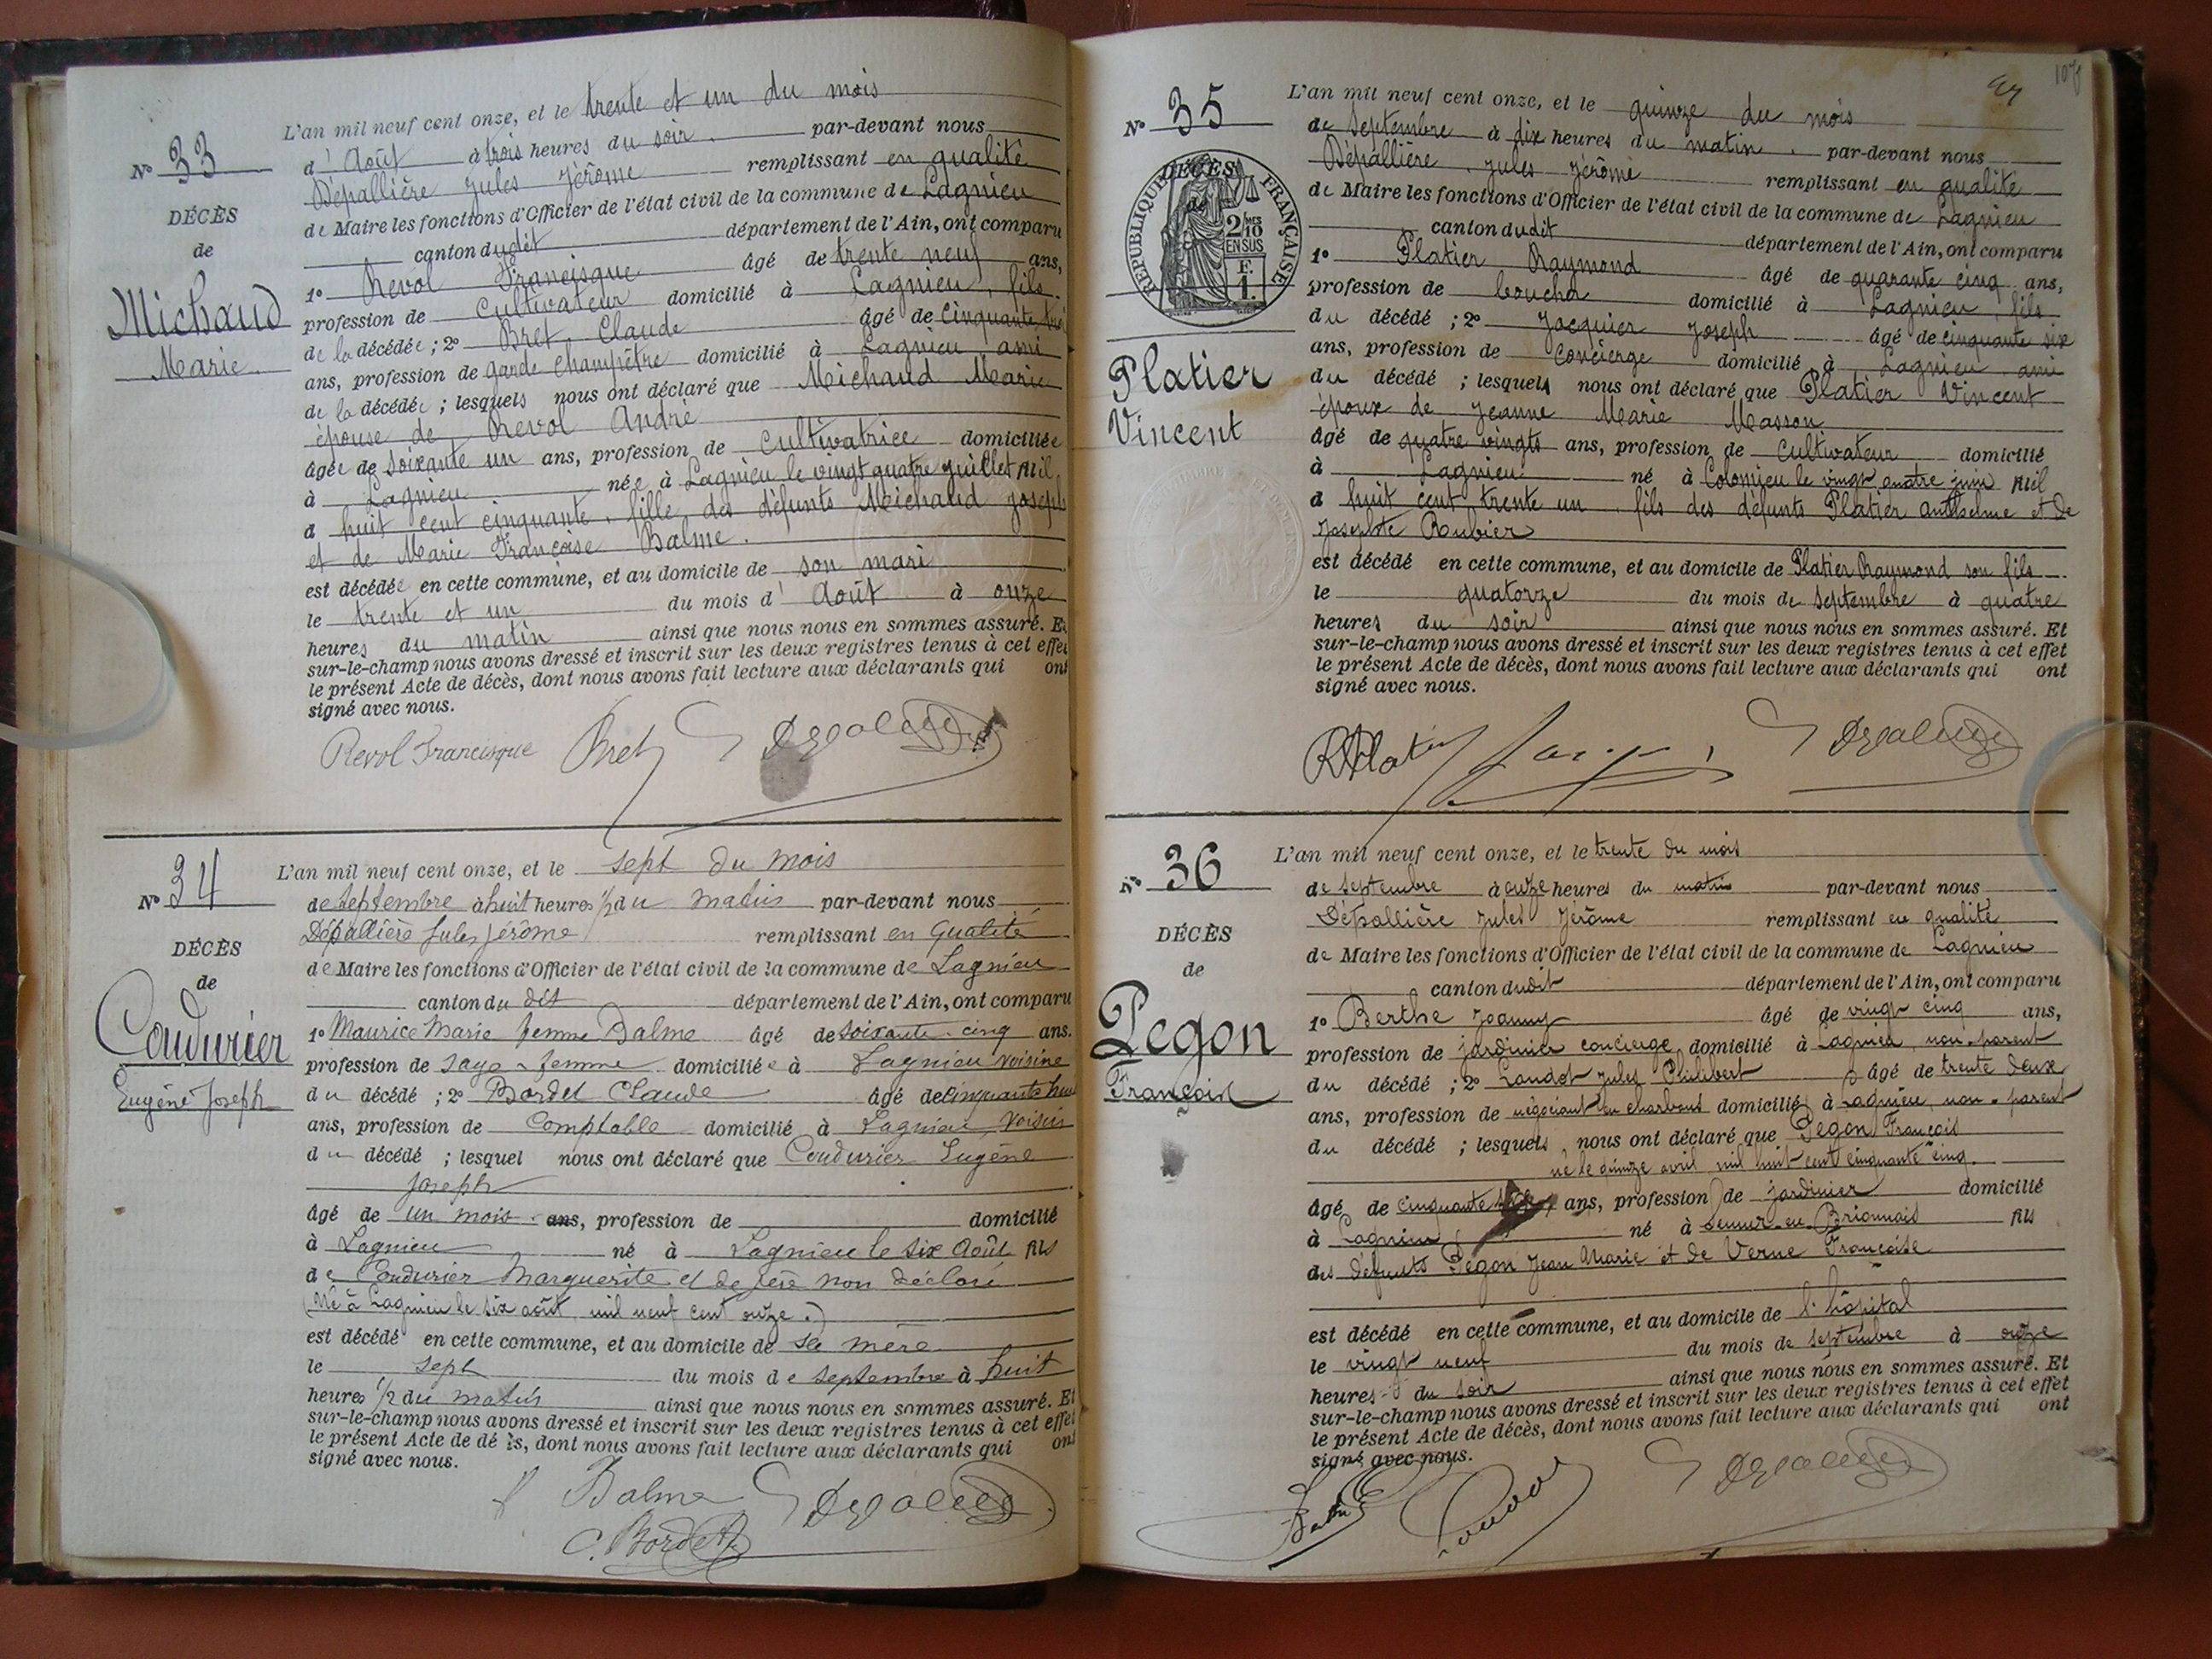 N° 33
DÉCÈS
de
Michaud
Marie
L'an mil neuf cent onze, et le trente et un du mois
d'Août à trois heures du soir par-devant nous
Dépallière Jules Jérôme remplissant en qualité
de Maire les fonctions d'Officier de l'état civil de la commune de Lagnieu
canton dudit département de l'Ain, ont comparu
1° Revol Francisque âgé de trente neuf ans,
profession de Cultivateur domicilié à Lagnieu, fils
de la décédée ; 2° Bret Claude âgé de Cinquante
ans, profession de garde champêtre domicilié à Lagnieu ami
de la décédée ; lesquels nous ont déclaré que Michaud Marie
épouse de Revol André
âgée de soixante un ans, profession de cultivatrice domiciliée
à Lagnieu née à Lagnieu le vingt quatre juillet mil
huit cent cinquante, fille des défunts Michaud Joseph
et de Marie Françoise Balme.
est décédée en cette commune, et au domicile de son mari
le trente et un du mois d'Août à onze
heures du matin ainsi que nous nous en sommes assuré. Et
sur-le-champ nous avons dressé et inscrit sur les deux registres tenus à cet effet
le présent Acte de décès, dont nous avons fait lecture aux déclarants qui ont
signé avec nous.
Revol Francisque Bret
N° 34
DÉCÈS
de
Coudurier
Eugène Joseph
L'an mil neuf cent onze, et le sept du mois
de septembre à huit heures 1/2 du matin par-devant nous
Dépallière Jules Jérôme remplissant en qualité
de Maire les fonctions d'Officier de l'état civil de la commune de Lagnieu
canton du dit département de l'Ain, ont comparu
1° Maurice Marie femme Balme âgé de soixante cinq ans.
profession de sage-femme domiciliée à Lagnieu voisine
du décédé ; 2° Bordet Claude âgé de cinquante
ans, profession de Comptable domicilié à Lagnieu, voisin
du décédé ; lesquel nous ont déclaré que Coudurier Eugène
Joseph
âgé de un mois ans, profession de domicilié
à Lagnieu né à Lagnieu le six Août fils
de Coudurier Marguerite et de père non déclaré
(Né à Lagnieu le six août mil neuf cent onze.)
est décédé en cette commune, et au domicile de sa mère
le sept du mois de septembre à huit
heures 1/2 du matin ainsi que nous nous en sommes assuré. Et
sur-le-champ nous avons dressé et inscrit sur les deux registres tenus à cet effet
le présent Acte de dé ès, dont nous avons fait lecture aux déclarants qui ont
signé avec nous.
Balme
C. Bordet
107
N° 35
DÉCÈS
de
RÉPUBLIQUE FRANÇAISE
2/10 MES
EN SUS
F.
1.
Platier
Vincent
L'an mil neuf cent onze, et le quinze du mois
de septembre à dix heures du matin par-devant nous
Dépallière Jules Jérôme remplissant en qualité
de Maire les fonctions d'Officier de l'état civil de la commune de Lagnieu
canton dudit département de l'Ain, ont comparu
1° Platier Raymond âgé de quarante cinq ans,
profession de domicilié à Lagnieu, fils
du décédé ; 2° Jacquier Joseph âgé de cinquante six
ans, profession de concierge domicilié à Lagnieu ami
du décédé ; lesquels nous ont déclaré que Platier Vincent
époux de Jeanne Marie Masson
âgé de quatre vingts ans, profession de cultivateur domicilié
à Lagnieu né à Colomieu le vingt quatre juin mil
huit cent trente un fils des défunts Platier Anthelme et de
Josephte Rubier
est décédé en cette commune, et au domicile de Platier Raymond son fils
le quatorze du mois de septembre à quatre
heures du soir ainsi que nous nous en sommes assuré. Et
sur-le-champ nous avons dressé et inscrit sur les deux registres tenus à cet effet
le présent Acte de décès, dont nous avons fait lecture aux déclarants qui ont
signé avec nous.
N° 36
DÉCÈS
de
Pegon
François
L'an mil neuf cent onze, et le trente du mois
de septembre à onze heures du matin par-devant nous
Dépallière Jules Jérôme remplissant en qualité
de Maire les fonctions d'Officier de l'état civil de la commune de Lagnieu
canton dudit département de l'Ain, ont comparu
1° Berthe Joanny âgé de vingt cinq ans,
profession de jardinier concierge domicilié à Lagnieu, non-parent
du décédé ; 2° Jules Philibert âgé de trente deux
ans, profession de négociant en charbons domicilié à Lagnieu, non-parent
du décédé ; lesquels nous ont déclaré que Pegon François
né le quinze avril mil huit cent cinquante cinq.
âgé de cinquante ans, profession de jardinier domicilié
à Lagnieu né à Semur en Brionnais fils
des défunts Pegon Jean Marie et de Verne Françoise
est décédé en cette commune, et au domicile de l'hôpital
le vingt neuf du mois de septembre à onze
heures du soir ainsi que nous nous en sommes assuré. Et
sur-le-champ nous avons dressé et inscrit sur les deux registres tenus à cet effet
le présent Acte de décès, dont nous avons fait lecture aux déclarants qui ont
signé avec nous.